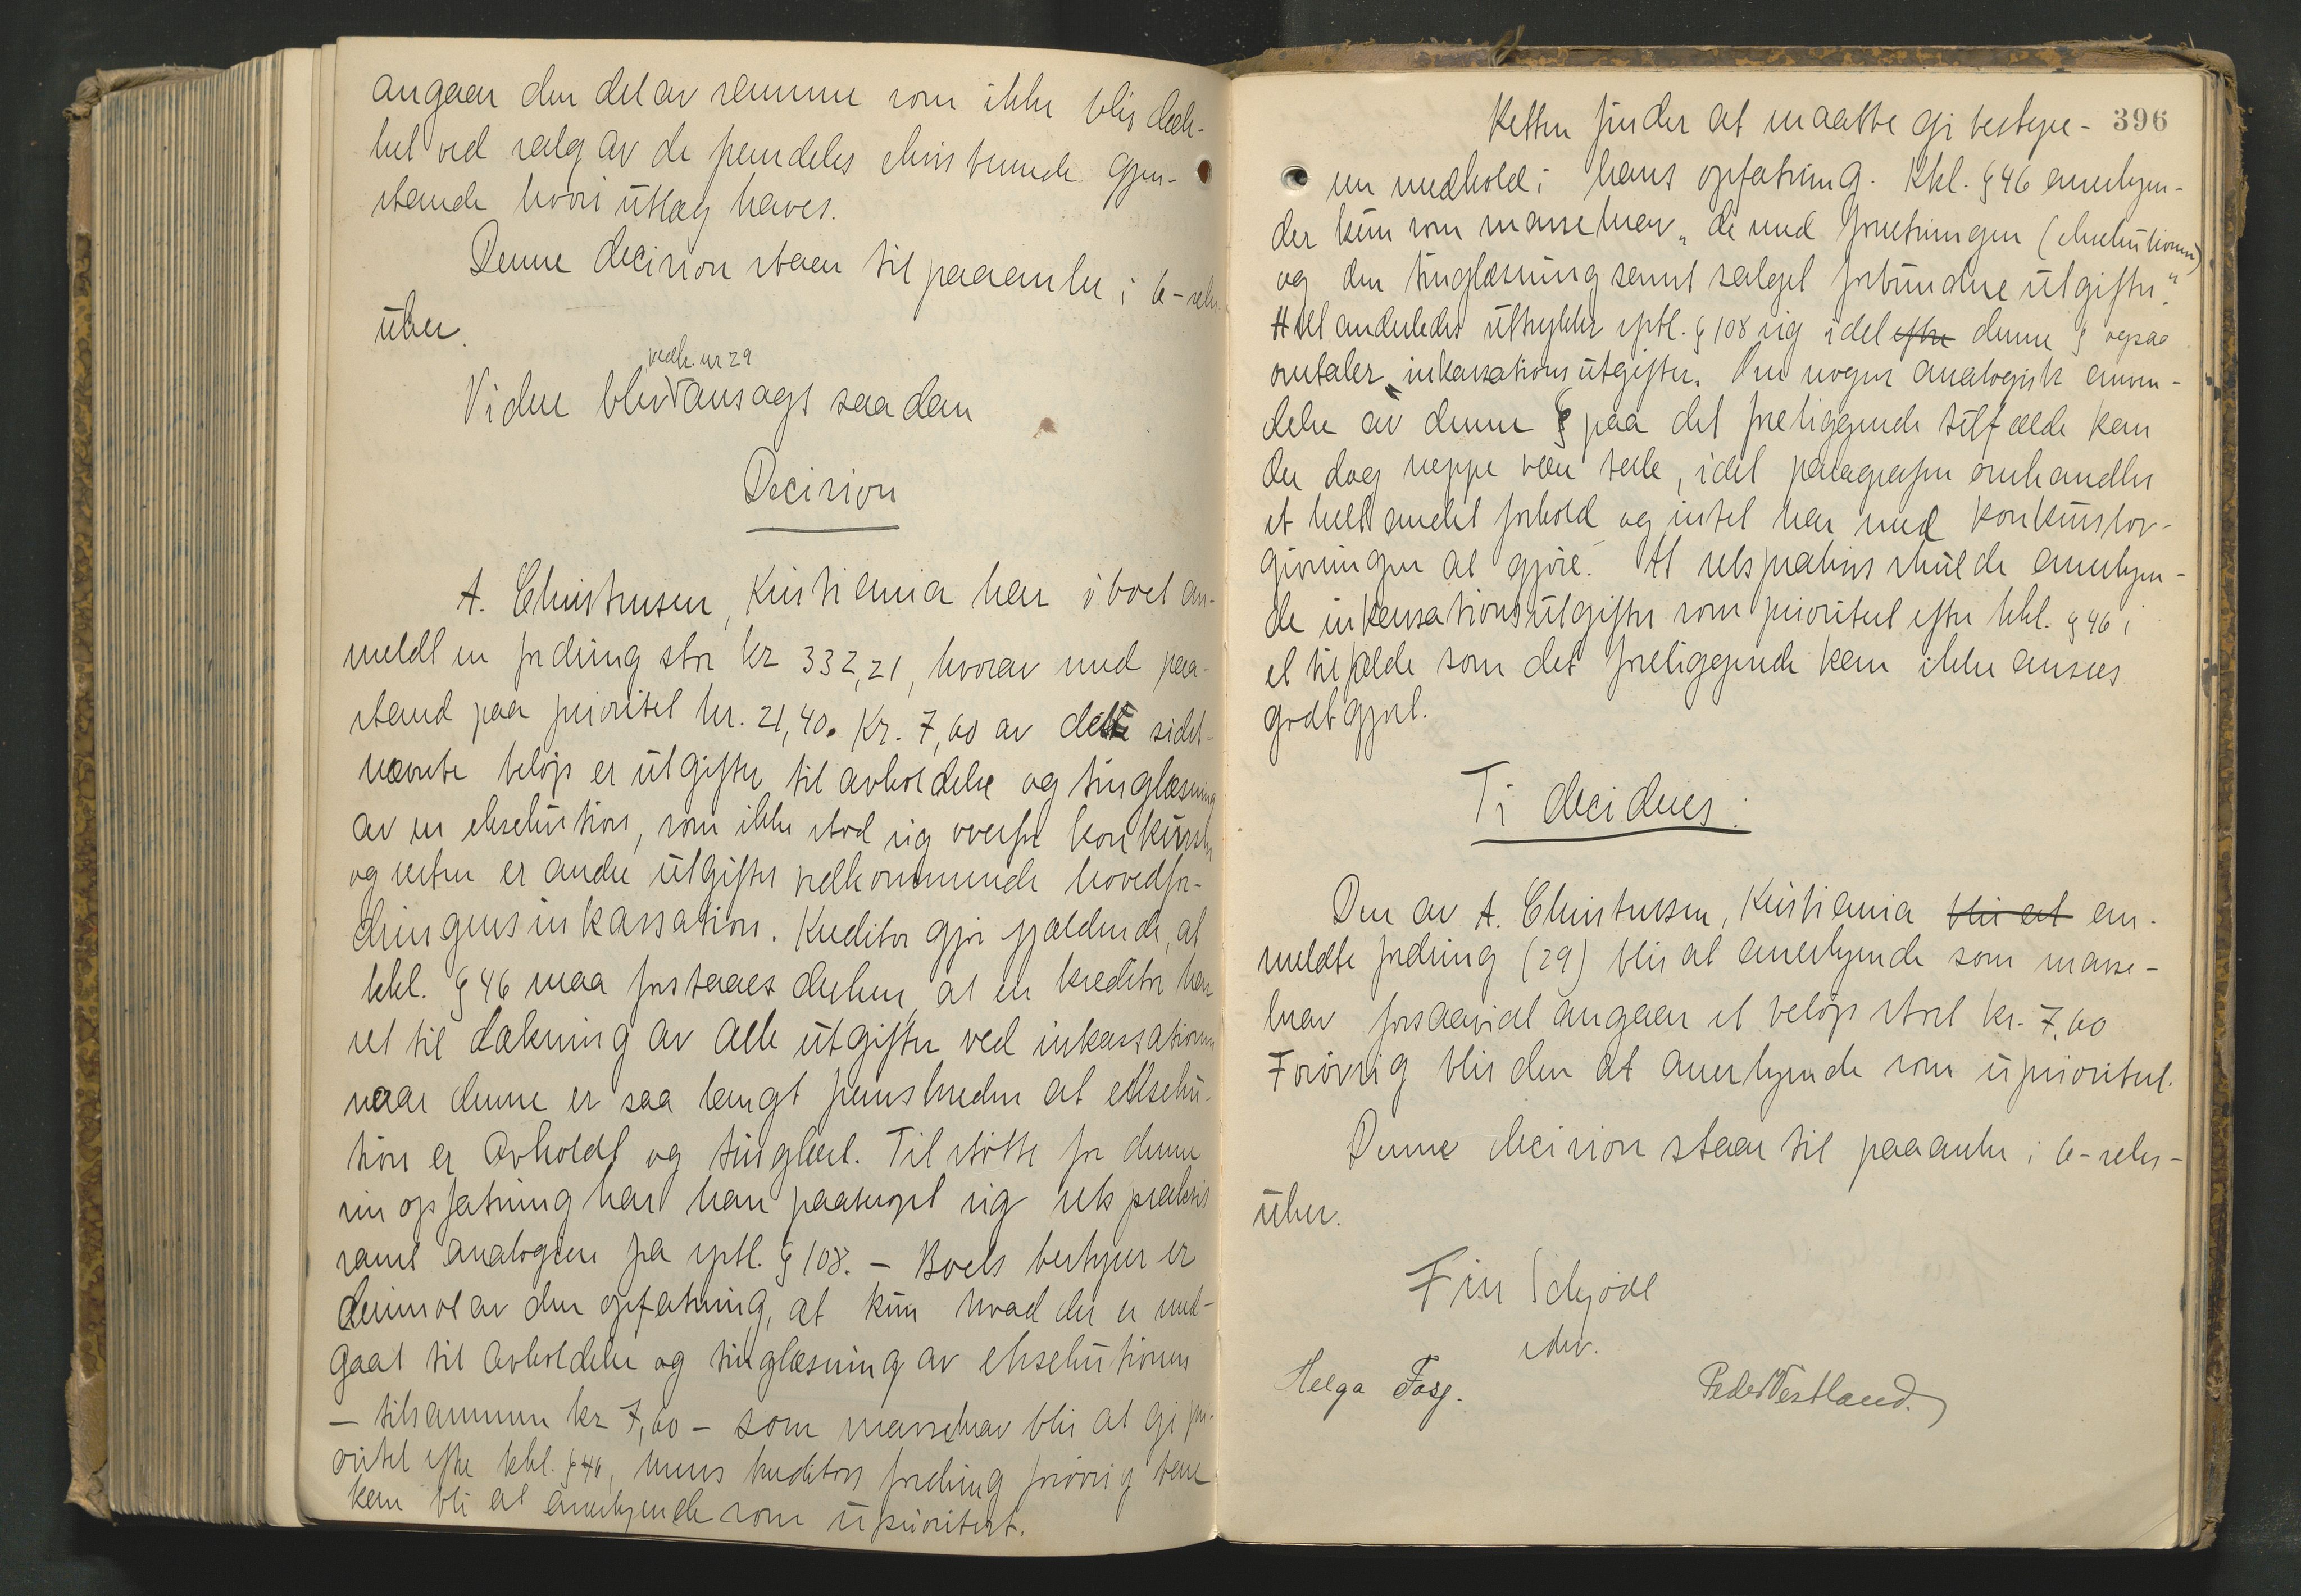 angaar den del av samme som ikke blir dæk-
ket ved salg av de fremdeles eksisterende gjen-
stande hvori utlæg haves.
Denne decision staar til paaanke i 6-seks
uker.
vedk. nr 29
Videre blev avsagt saadan
Decision
A. Christensen, Kristiania har i boet an-
meldt en fordring stor kr 332,21, hvorav med paa-
stand paa prioritet kr. 21,40. Kr. 7,60 av dette sidst-
nævnte beløp er utgifter til avholdelse og tinglæsning
av en eksekution, som ikke stod sig overfor konkursen
og resten er andre utgifter vedkommende hovedfor-
dringens inkassation. Kreditor gjør gjældende, at
kkl. § 46 maa forstaaes derhen, at en kreditor har
ret til dækning av alle utgifter ved inkassationen
naar denne er saa langt fremskreden at ekseku-
tion er avholdt og tinglæst. Til støtte for denne
sin opfatning har han paaberopt sig retspraksis
samt analogien fra sptl. § 108. - Boets bestyrer er
derimot av den opfatning, at kun hvad der er med-
gaat til avholdelse og tinglæsning av eksekutionen
- tilsammen kr 7,60 - som massekrav blir at gi pri-
oritet efter kkl. § 46, mens kreditors fordring forøvrig bare
kan bli at anerkjende som uprioritert.
396
Retten finder at maatte gi bestyre-
ren medhold i hans opfatning. Kkl. § 46 anerkjen-
der kun som massekrav "de med forretningen (eksekutionen)
og den tinglæsning samt salget forbundne utgifter."
Helt anderledes uttrykker sptl. § 108 sig idet efter denne § ogsaa
omtaler inkassationsutgifter. Om nogen analogisk anven-
delse av denne § paa det foreliggende tilfælde kan
der dog neppe være tale, idet paragrafen omhandler
et helt andet forhold og intet har med konkurslov-
givningen at gjøre. At retspraksis skulde anerkjen-
de inkassationsutgifter som prioritert efter kkl. § 46 i
et tilfælde som det foreliggende kan ikke ansees
godtgjort.
Ti decideres:
Den av A. Christensen, Kristiania blir at an-
meldte fordring (29) blir at anerkjende som masse-
krav forsaavidt angaar et beløp stort kr. 7,60
Forøvrig blir den at anerkjende som uprioritert.
Denne decision staar til paaanke i 6-seks-
uker.
Fin Schjødt
edv.
Helga Fasg.
Peder Vestland.